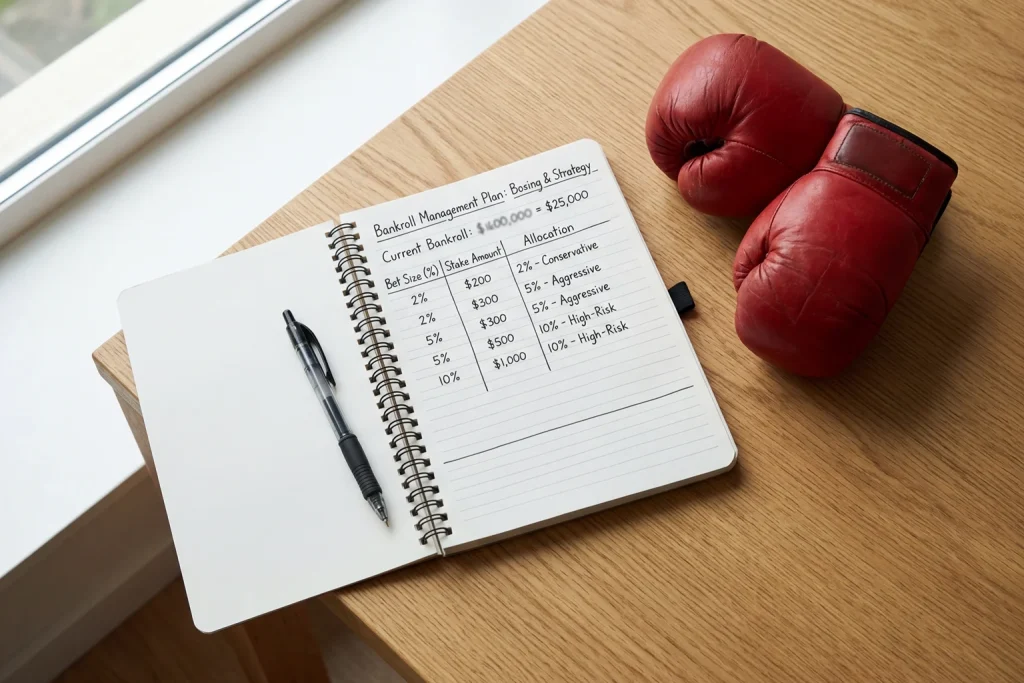 Bankroll Management Plan: Bosing & Strategy
Current Bankroll: = $25,000
Bet Size (%) Stake Amount Allocation
2% $200 2% - Conservative
2% $300 5% - Aggressive
5% $300 5% - Aggressive
5% $500 10% - High-Risk
10% $1,000 10% - High-Risk